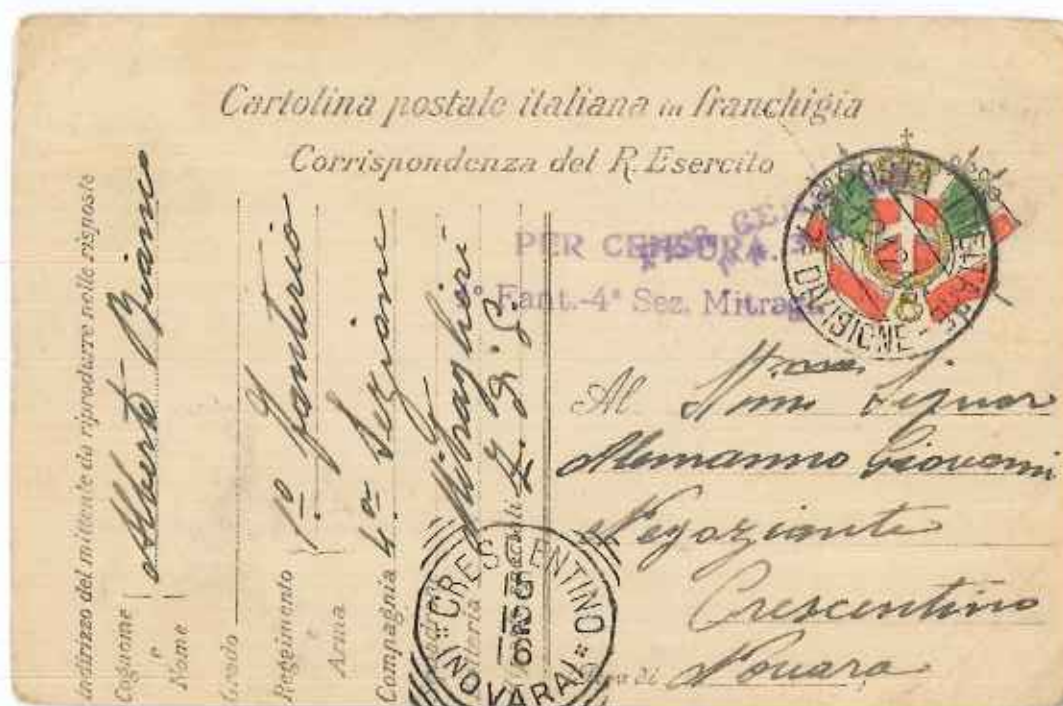 Cartolina postale italiana in franchigia
Corrispondenza del R. Esercito
PER CENSURA.
Fant.-4ª Sez. Mitragl.
POSTA MILITARE
DIVISIONE
Al Ill.mo Signor
Alemanno Giovanni
Negoziante
Crescentino
Novara
Indirizzo del mittente da riprodurre nelle risposte
Cognome e Nome Alberto Biano
Grado
Reggimento e Arma 1º fanteria
Compagnia 4ª Sezione
Mitraglieri
Z. d. G.
CRESCENTINO
(NOVARA)